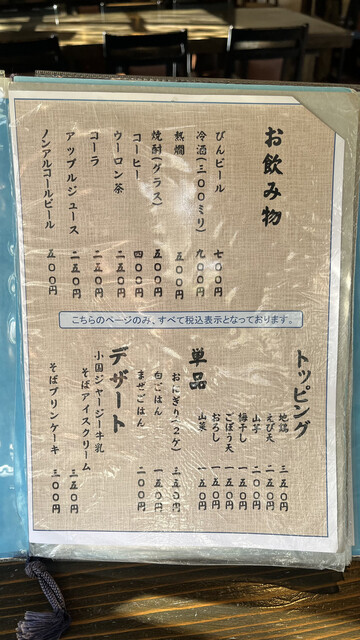 お飲み物
びんビール 七〇〇円
冷酒(三〇〇ミリ) 九〇〇円
熱燗 五〇〇円
焼酎(グラス) 五〇〇円
コーヒー 四〇〇円
ウーロン茶 二五〇円
コーラ 二五〇円
アップルジュース 二五〇円
ノンアルコールビール 五〇〇円
こちらのページのみ、すべて税込表示となっております。
トッピング
地鶏 三五〇円
えび天 二五〇円
山芋 二〇〇円
梅干し 一五〇円
ごぼう天 一五〇円
おろし 一五〇円
山菜 一五〇円
単品
おにぎり(2ケ) 三五〇円
白ごはん 一五〇円
まぜごはん 二〇〇円
デザート
小国ジャージー牛乳
そばアイスクリーム 三五〇円
そばプリンケーキ 三〇〇円